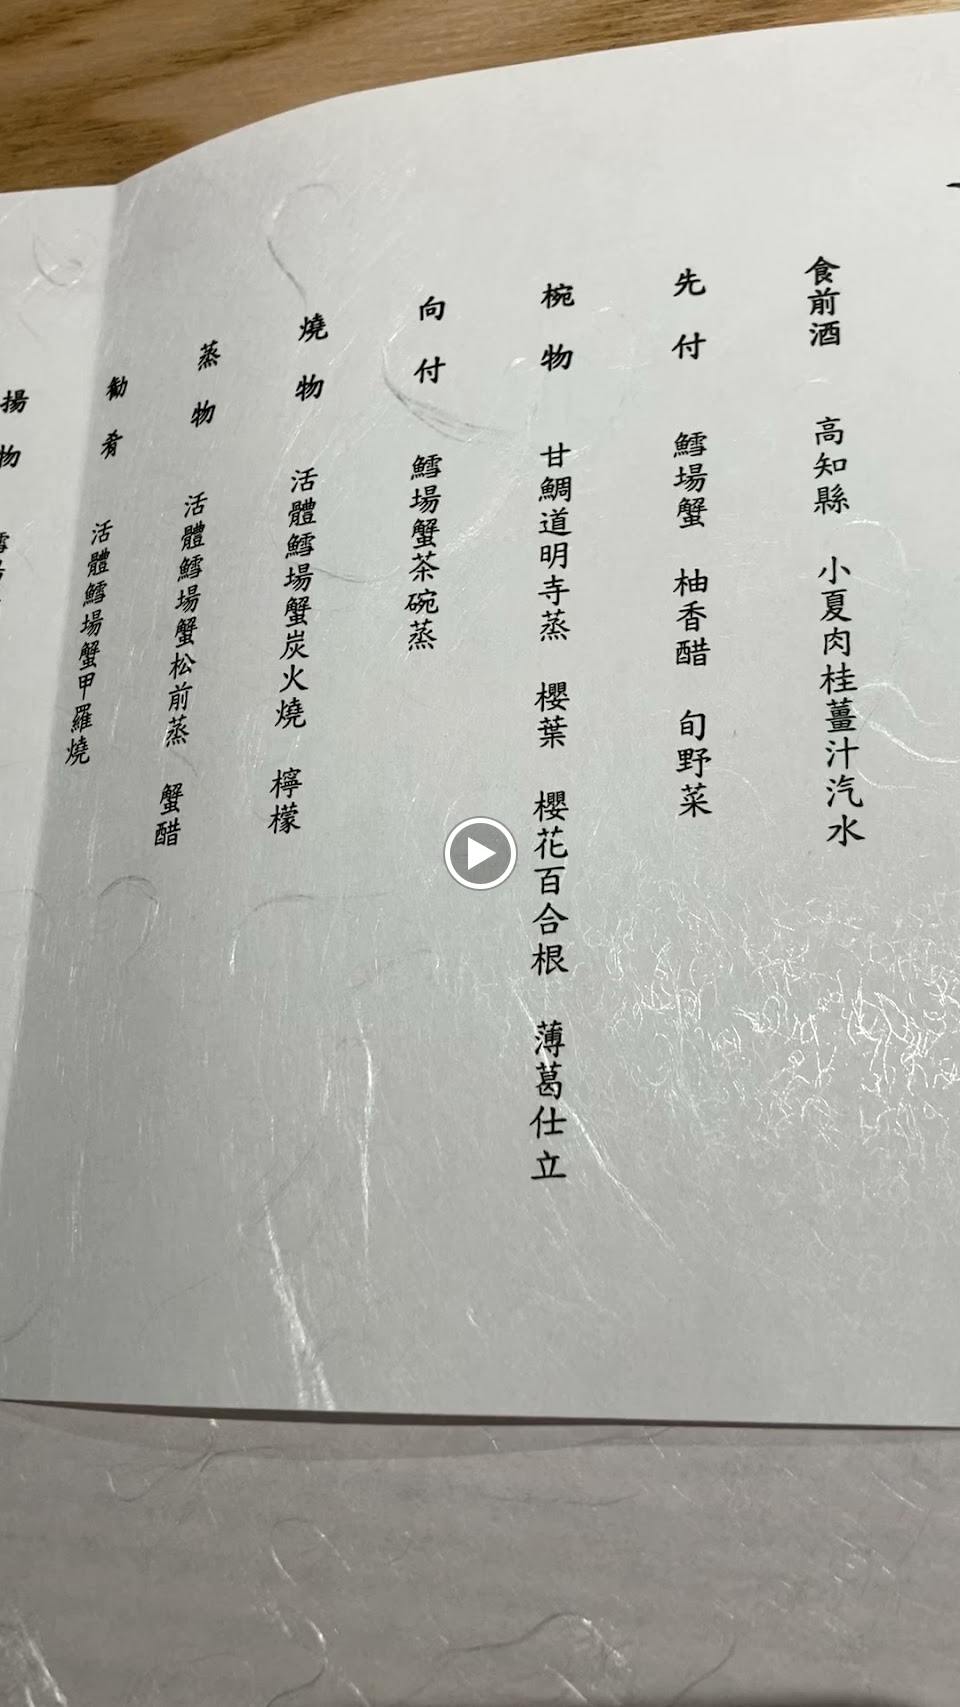 食前酒 高知縣 小夏肉桂薑汁汽水
先付 鱈場蟹 柚香醋 旬野菜
椀物 甘鯛道明寺蒸 櫻葉 櫻花百合根 薄葛仕立
向付 鱈場蟹茶碗蒸
燒物 活體鱈場蟹炭火燒 檸檬
蒸物 活體鱈場蟹松前蒸 蟹醋
勧肴 活體鱈場蟹甲羅燒
揚物